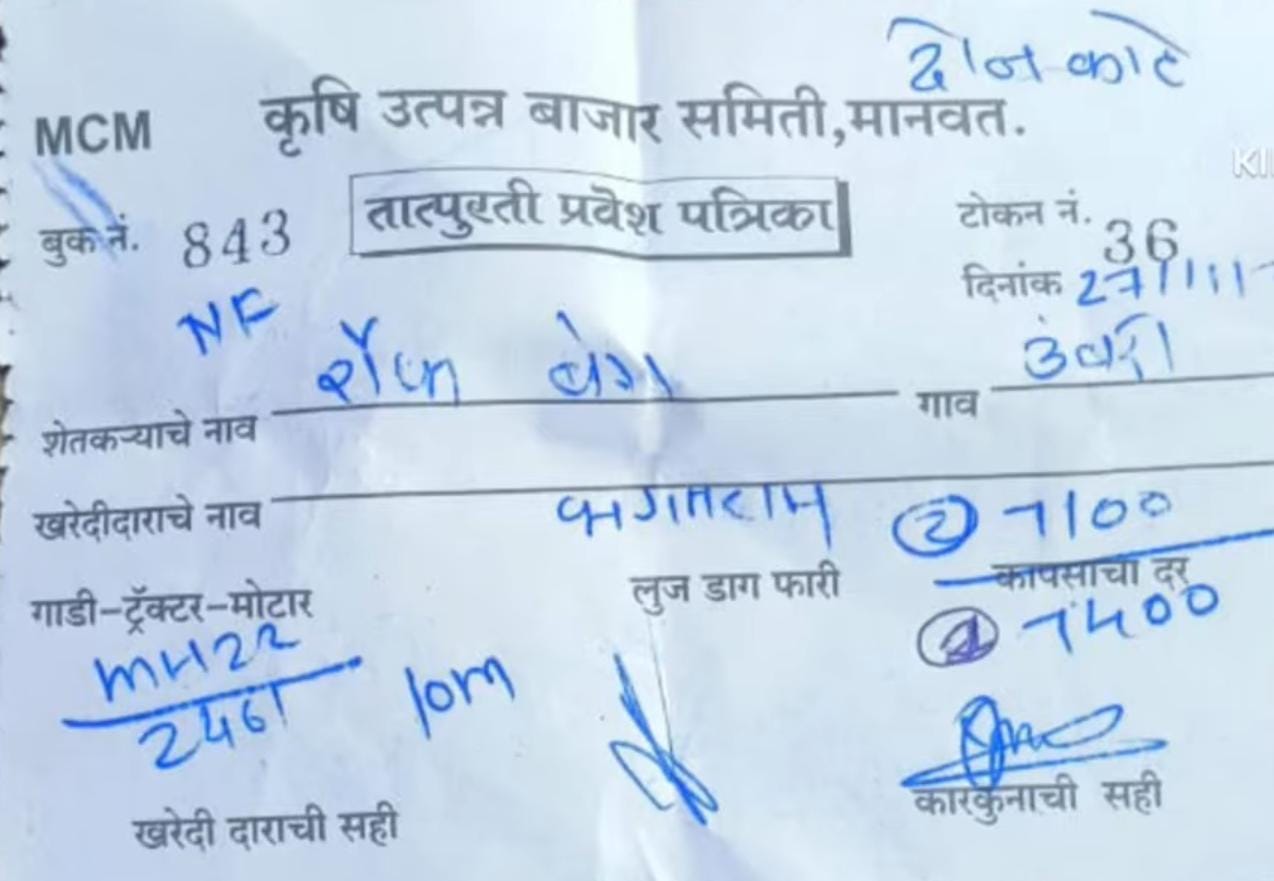 दोन काटे
MCM कृषि उत्पन्न बाजार समिती,मानवत.
बुक नं. 843 तात्पुरती प्रवेश पत्रिका टोकन नं. 36
NF दिनांक 27/11/
शेतकऱ्याचे नाव गाव
खरेदीदाराचे नाव भगतराम ② 7100
गाडी-ट्रॅक्टर-मोटार लुज डाग फारी कापसाचा दर
MH22 ① 7400
2461 10m
खरेदी दाराची सही कारकुनाची सही